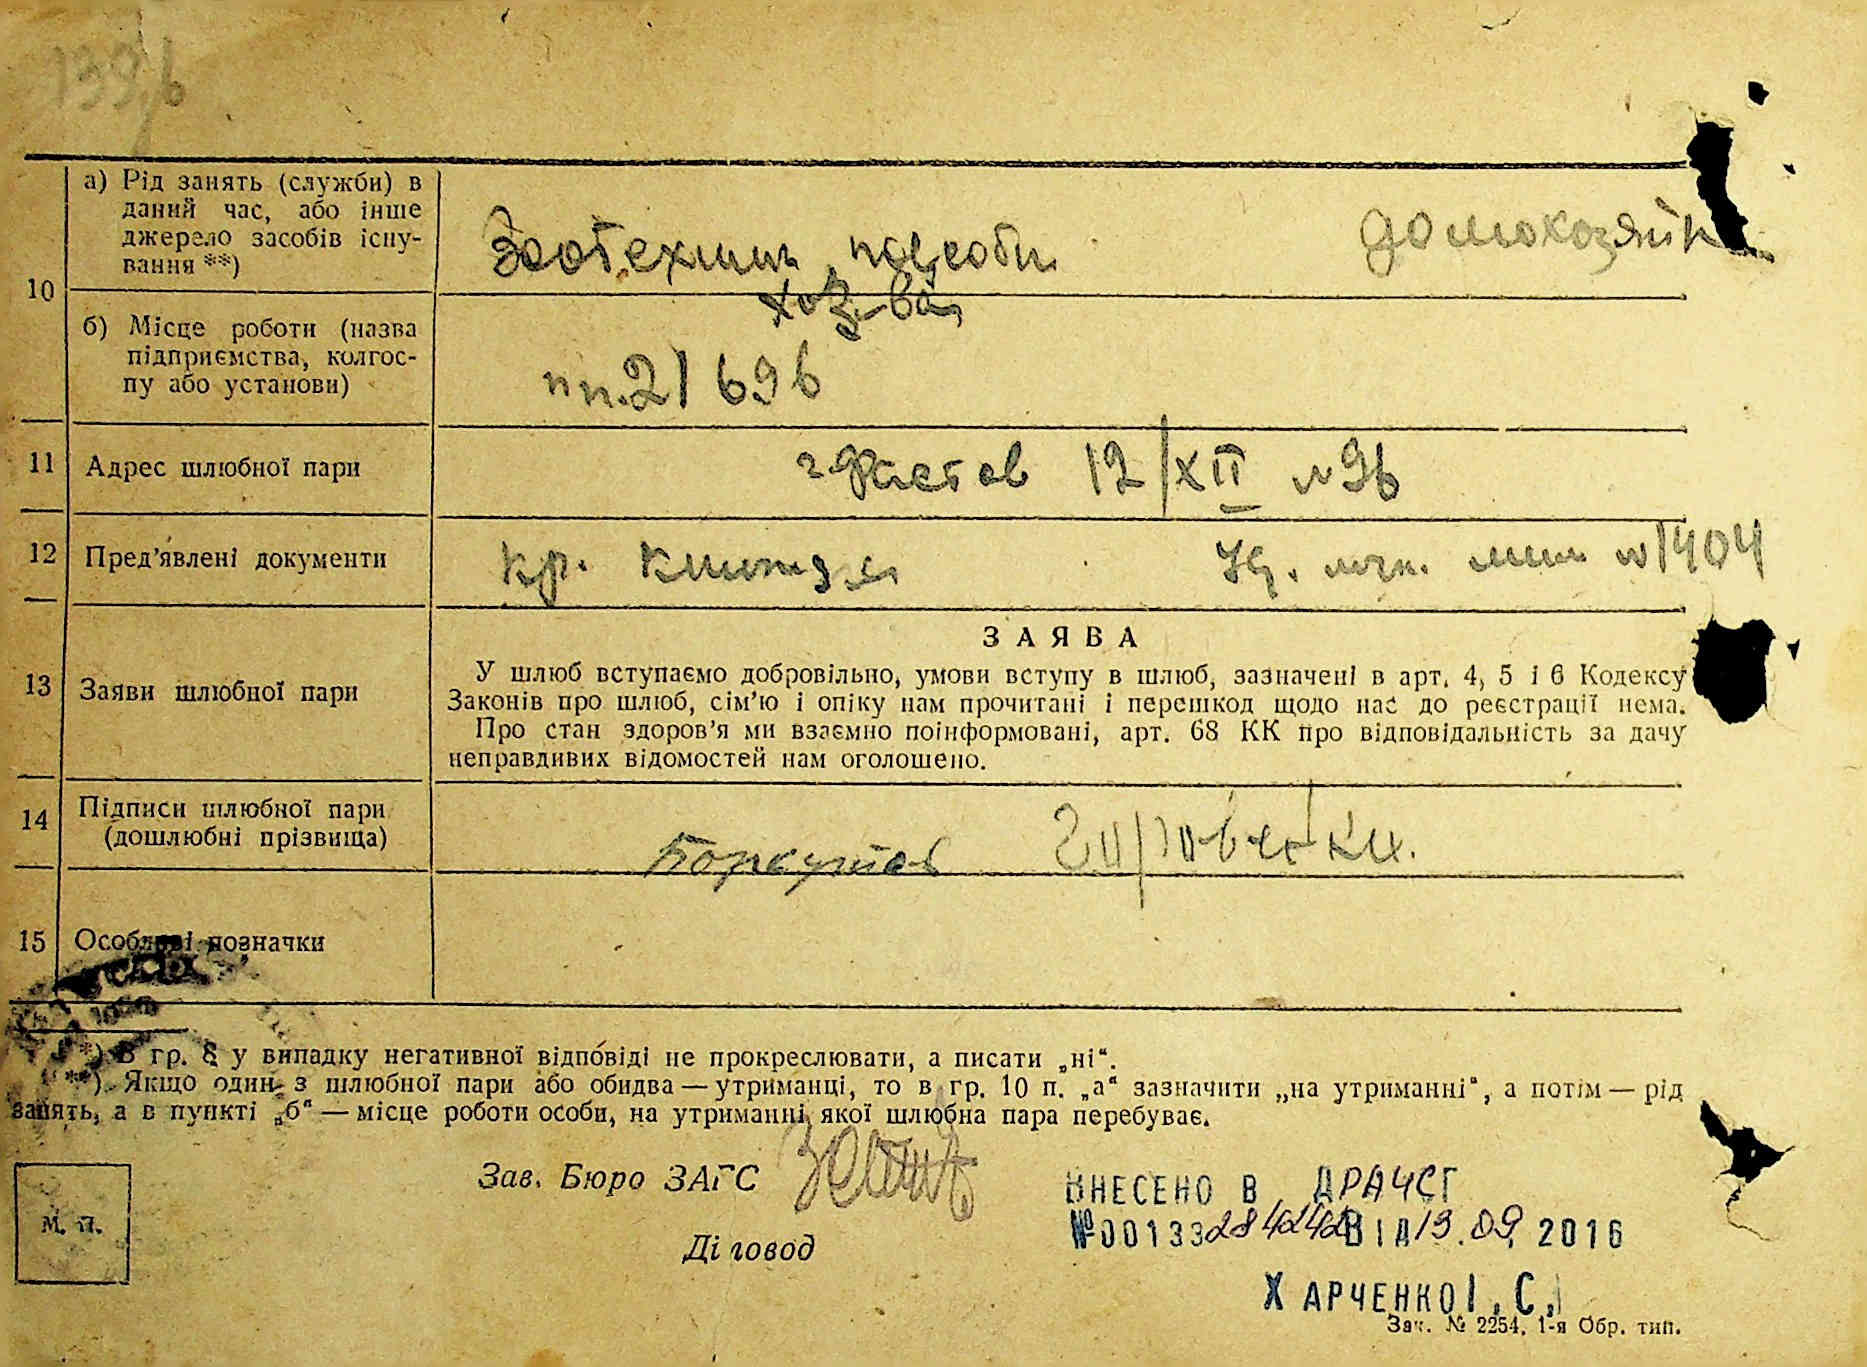 139б
10
а) Рід занять (служби) в
даний час, або інше
джерело засобів існу-
вання **)
Зоотехник подсобн.
домохозяйк
хоз-ва
б) Місце роботи (назва
підприємства, колгос-
пу або установи)
пп. 21696
11 Адрес шлюбної пари
г. Фастов 12/XII № 96
12 Пред’явлені документи
кр. книжка
Уд. личн. № 1404
13 Заяви шлюбної пари
ЗАЯВА
У шлюб вступаємо добровільно, умови вступу в шлюб, зазначені в арт. 4, 5 і 6 Кодексу
Законів про шлюб, сім’ю і опіку нам прочитані і перешкод щодо нас до реєстрації нема.
Про стан здоров’я ми взаємно поінформовані, арт. 68 КК про відповідальність за дачу
неправдивих відомостей нам оголошено.
14 Підписи шлюбної пари
(дошлюбні прізвища)
15 Особливі позначки
*) В гр. 8 у випадку негативної відповіді не прокреслювати, а писати „ні“.
**) Якщо один з шлюбної пари або обидва — утриманці, то в гр. 10 п. „а“ зазначити „на утриманні“, а потім — рід
занять, а в пункті „б“ — місце роботи особи, на утриманні якої шлюбна пара перебуває.
Зав. Бюро ЗАГС
М. П.
Діловод
ВНЕСЕНО В ДРАЧСГ
№00133284242 ВІД 19.09.2016
ХАРЧЕНКО І. С.
Зак. № 2254. 1-я Обр. тип.